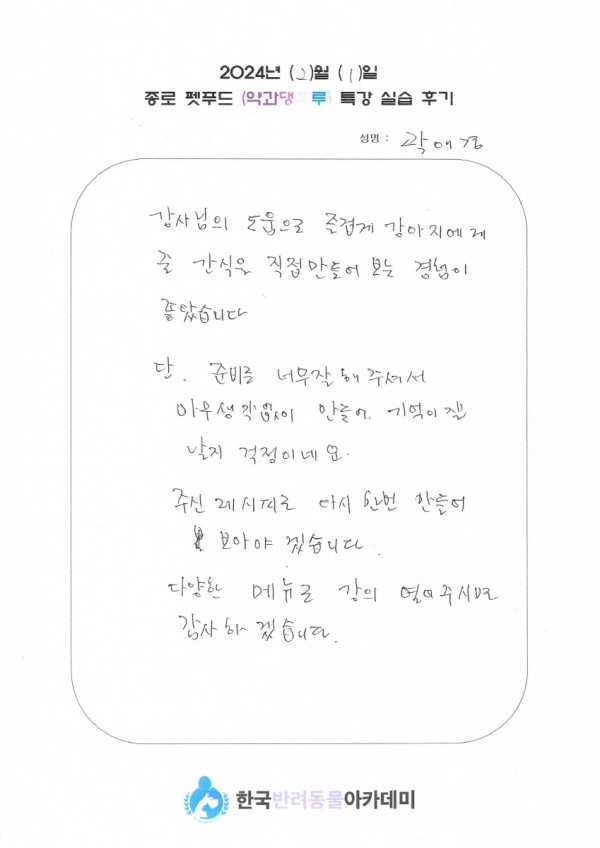 2024년 (2)월 (1)일
종로 펫푸드 (약과댕후루) 특강 실습 후기
성명 : 곽애경
강사님의 도움으로 즐겁게 강아지에게
줄 간식을 직접만들어 보는 경험이
좋았습니다
단. 준비를 너무잘해주셔서
아무생각없이 만들어 기억이 잘
날지 걱정이네요.
주신 레시피로 다시 한번 만들어
보아야 겠습니다.
다양한 메뉴로 강의 열어주시면
감사하겠습니다.
한국반려동물아카데미